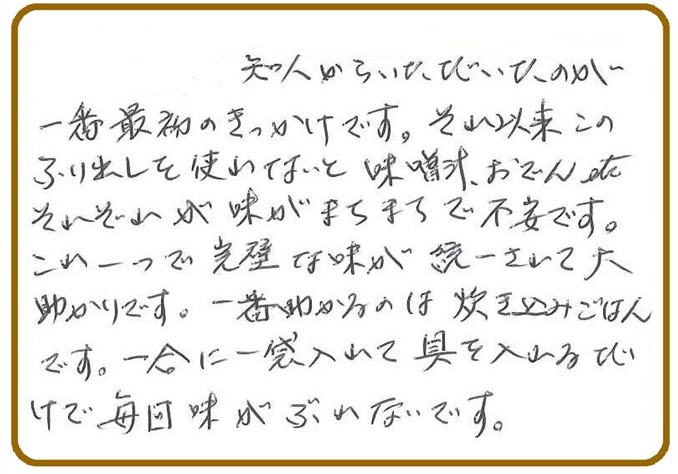 知人からいただいたのが
一番最初のきっかけです。それ以来この
ふり出しを使わないと味噌汁、おでんetc
それぞれが味がまちまちで不安です。
これ一つで完璧な味が統一されて大
助かりです。一番助かるのは炊き込みごはん
です。一合に一袋入れて具を入れるだ
けで毎回味がぶれないです。